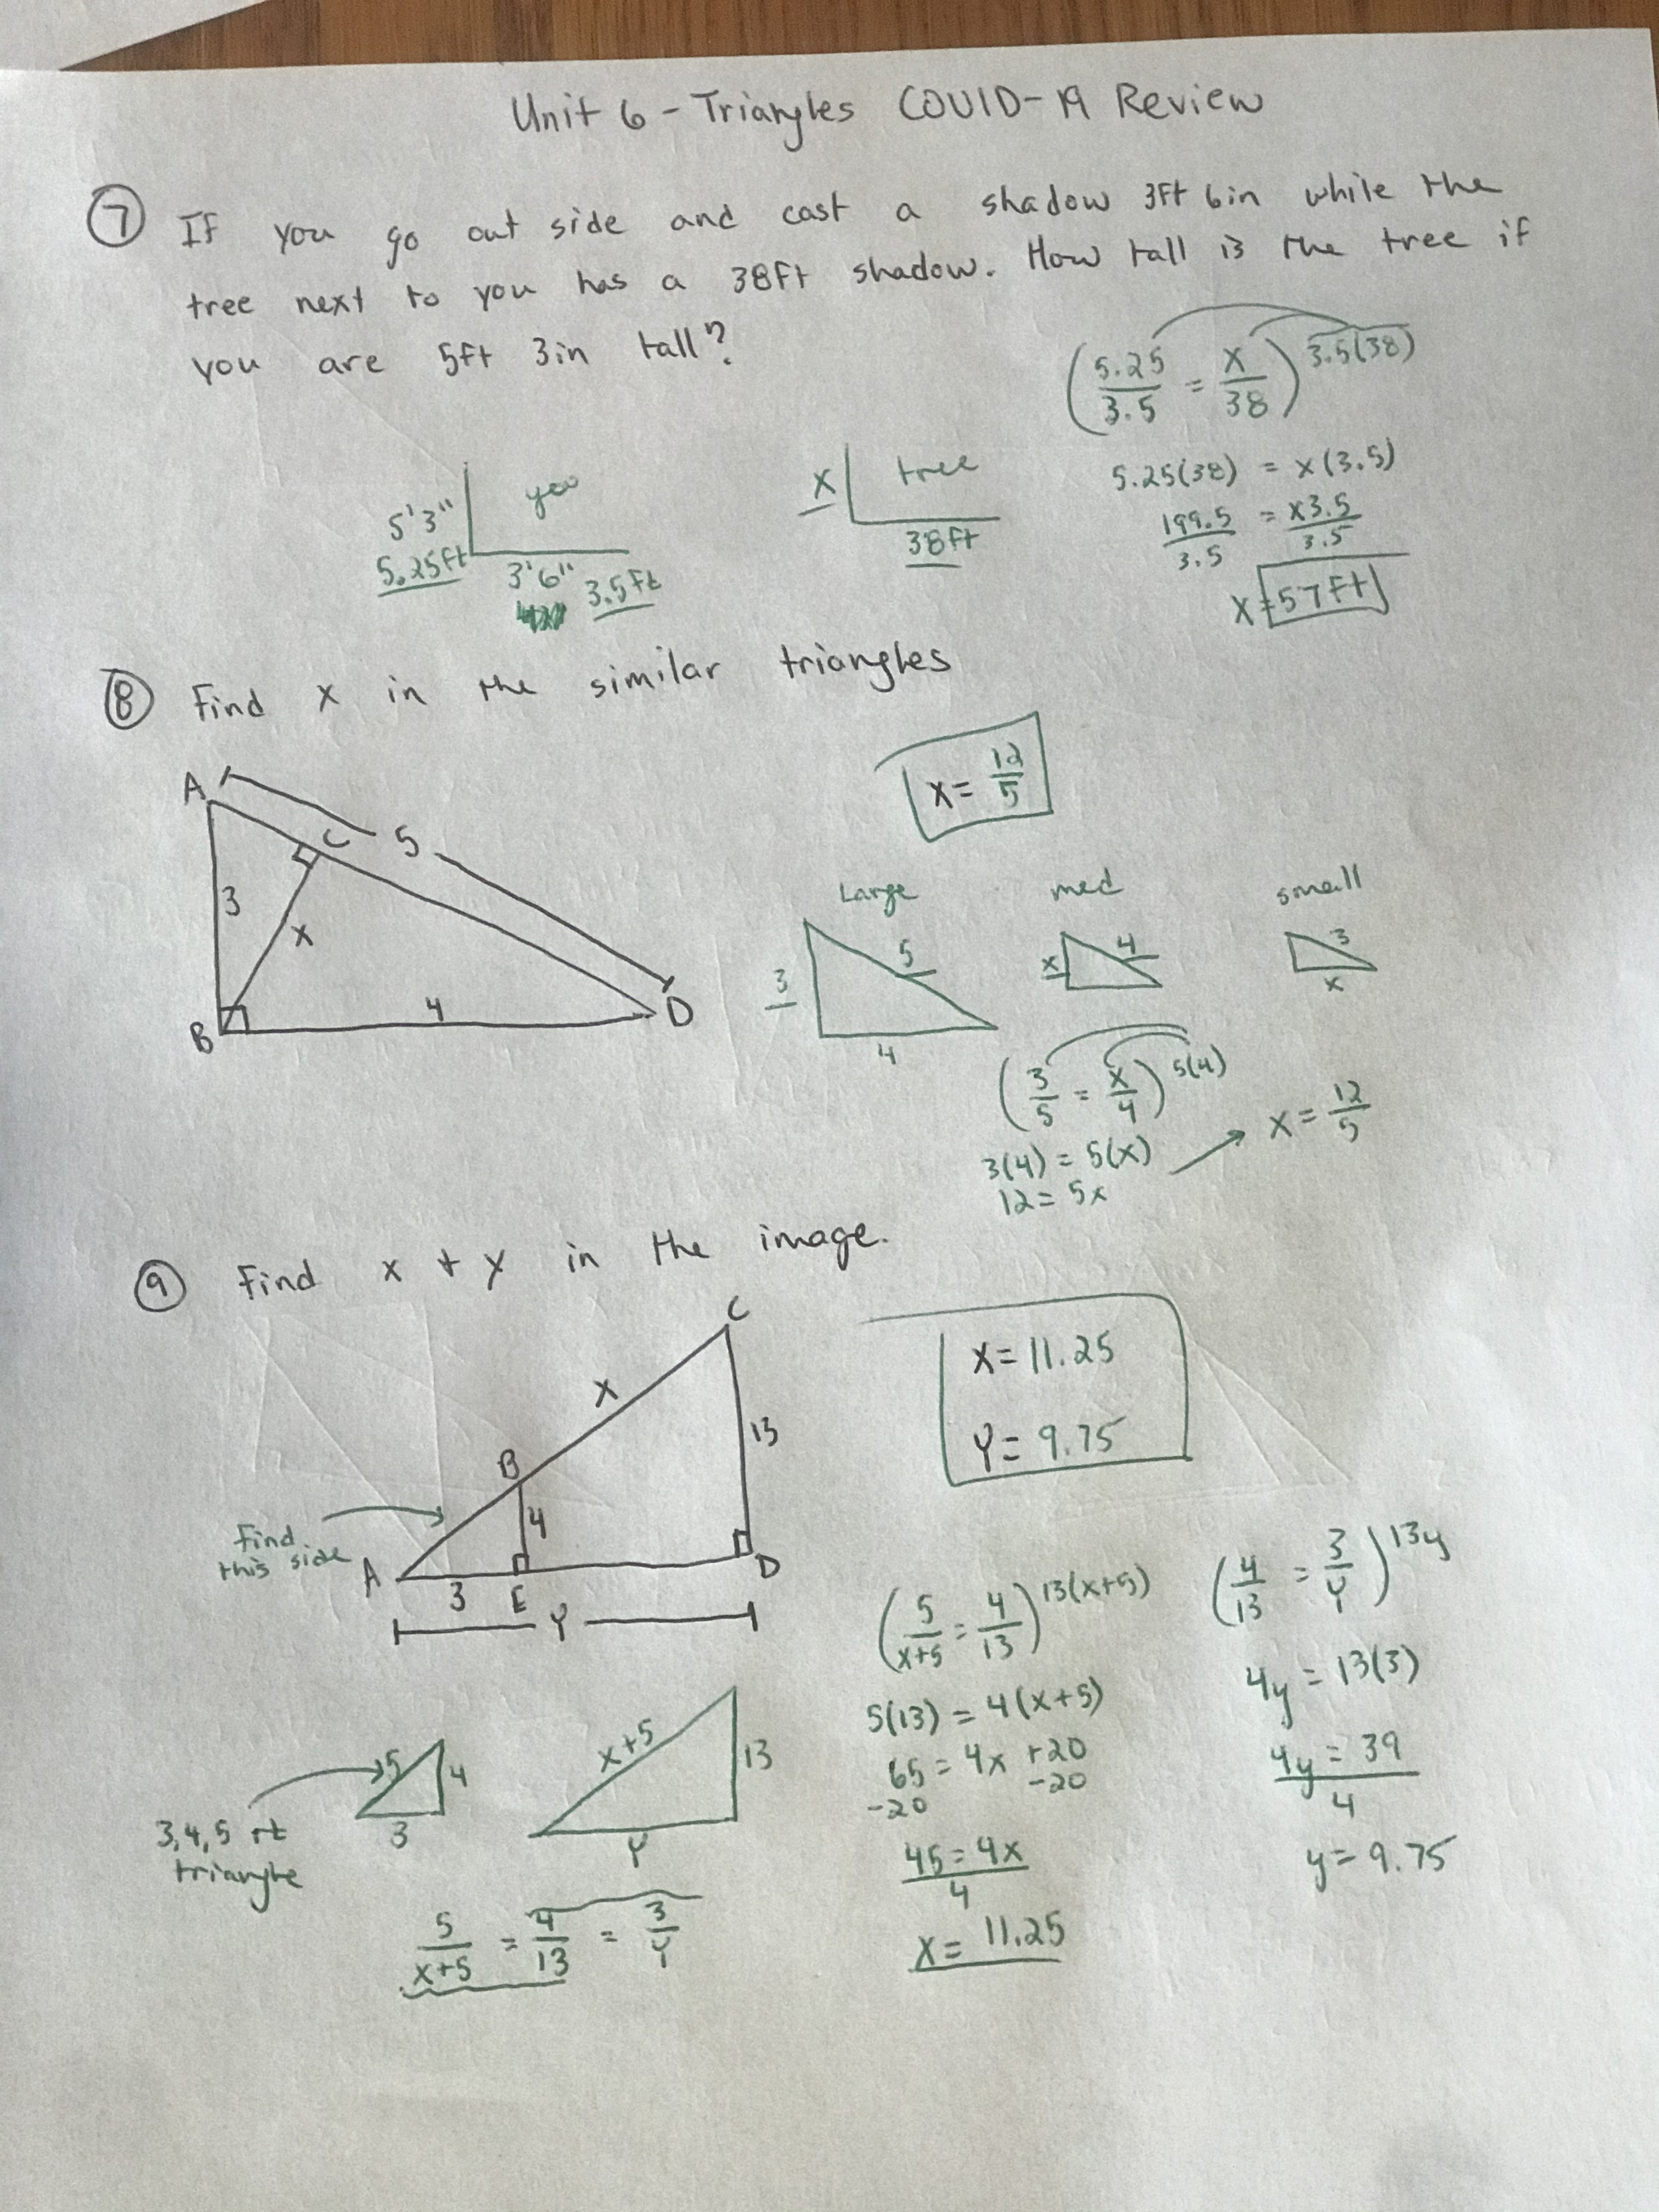 Unit 6 - Triangles COVID-19 Review
7 If you go out side and cast a shadow 3ft 6in while the
tree next to you has a 38ft shadow. How tall is the tree if
you are 5ft 3in tall?
(5.25/3.5 = x/38) 3.5(38)
5.25(38) = x(3.5)
199.5/3.5 = x3.5/3.5
x = 57ft
5'3"
5.25ft
you
3'6"
3.5ft
x
tree
38ft
8 Find x in the similar triangles
x = 12/5
A
C
5
3
x
B
4
D
Large
3
5
4
med
x
4
small
3
x
(3/5 = x/4) 5(4)
3(4) = 5(x)
12 = 5x
x = 12/5
9 Find x + y in the image.
x = 11.25
y = 9.75
C
x
13
B
4
find
this side
A
3
E
D
y
5
4
3
3,4,5 rt
triangle
x+5
13
y
5/x+5 = 4/13 = 3/y
(5/x+5 = 4/13) 13(x+5)
5(13) = 4(x+5)
65 = 4x + 20
-20 -20
45 = 4x
4
x = 11.25
(4/13 = 3/y) 13y
4y = 13(3)
4y = 39
4
y = 9.75